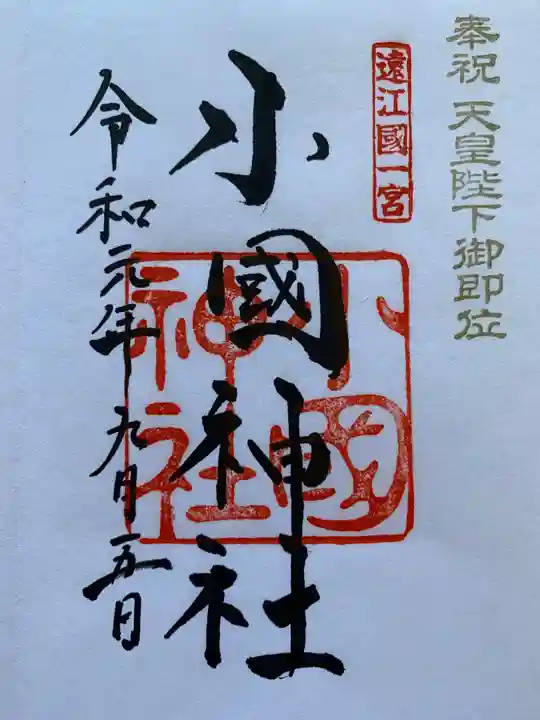 奉祝 天皇陛下御即位
遠江國一宮
小國神社
小國神社
令和元年九月二五日